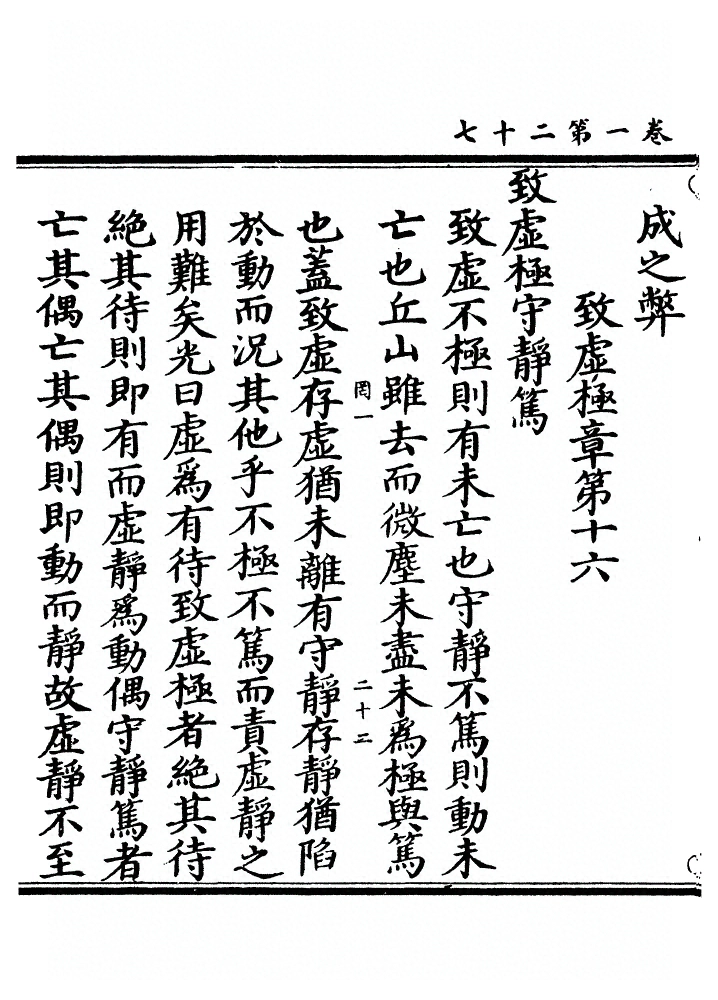 卷一第二十七
成之弊
致虛極章第十六
致虛極守靜篤
致虛不極則有未亡也守靜不篤則動未
亡也丘山雖去而微塵未盡未為極與篤
罔一
二十二
也蓋致虛存虛猶未離有守靜存靜猶陷
於動而況其他乎不極不篤而責虛靜之
用難矣光曰虛為有待致虛極者絕其待
絕其待則即有而虛靜為動偶守靜篤者
亡其偶亡其偶則即動而靜故虛靜不至